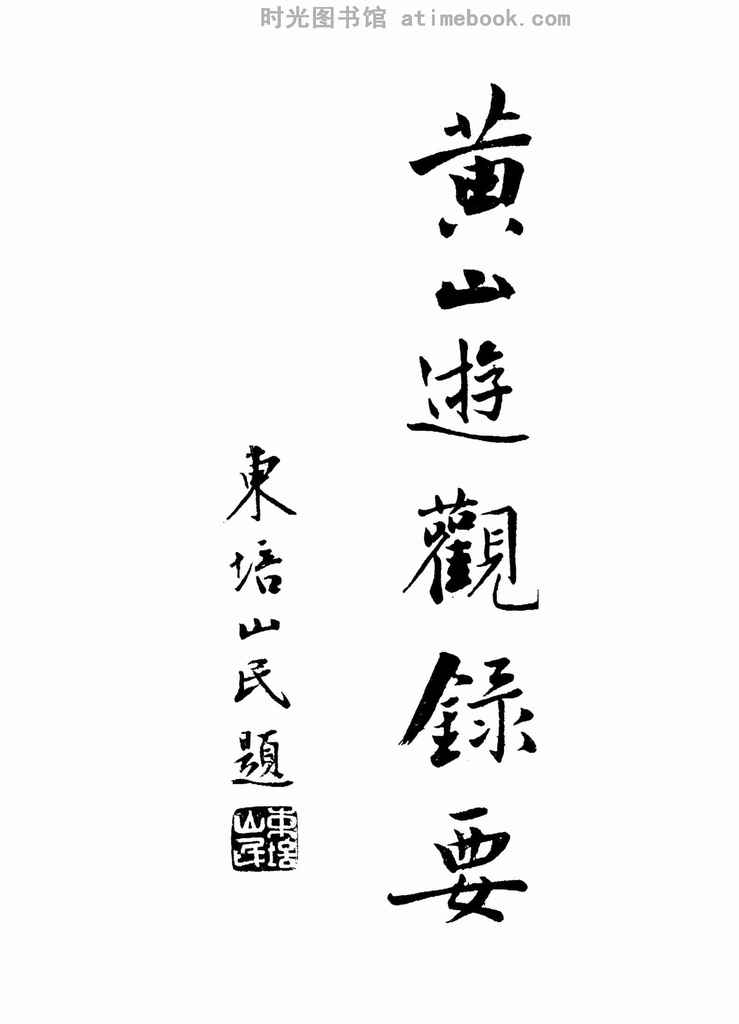 时光图书馆 atimebook.com
黄山遊觀録要
東培山民題
東培山民